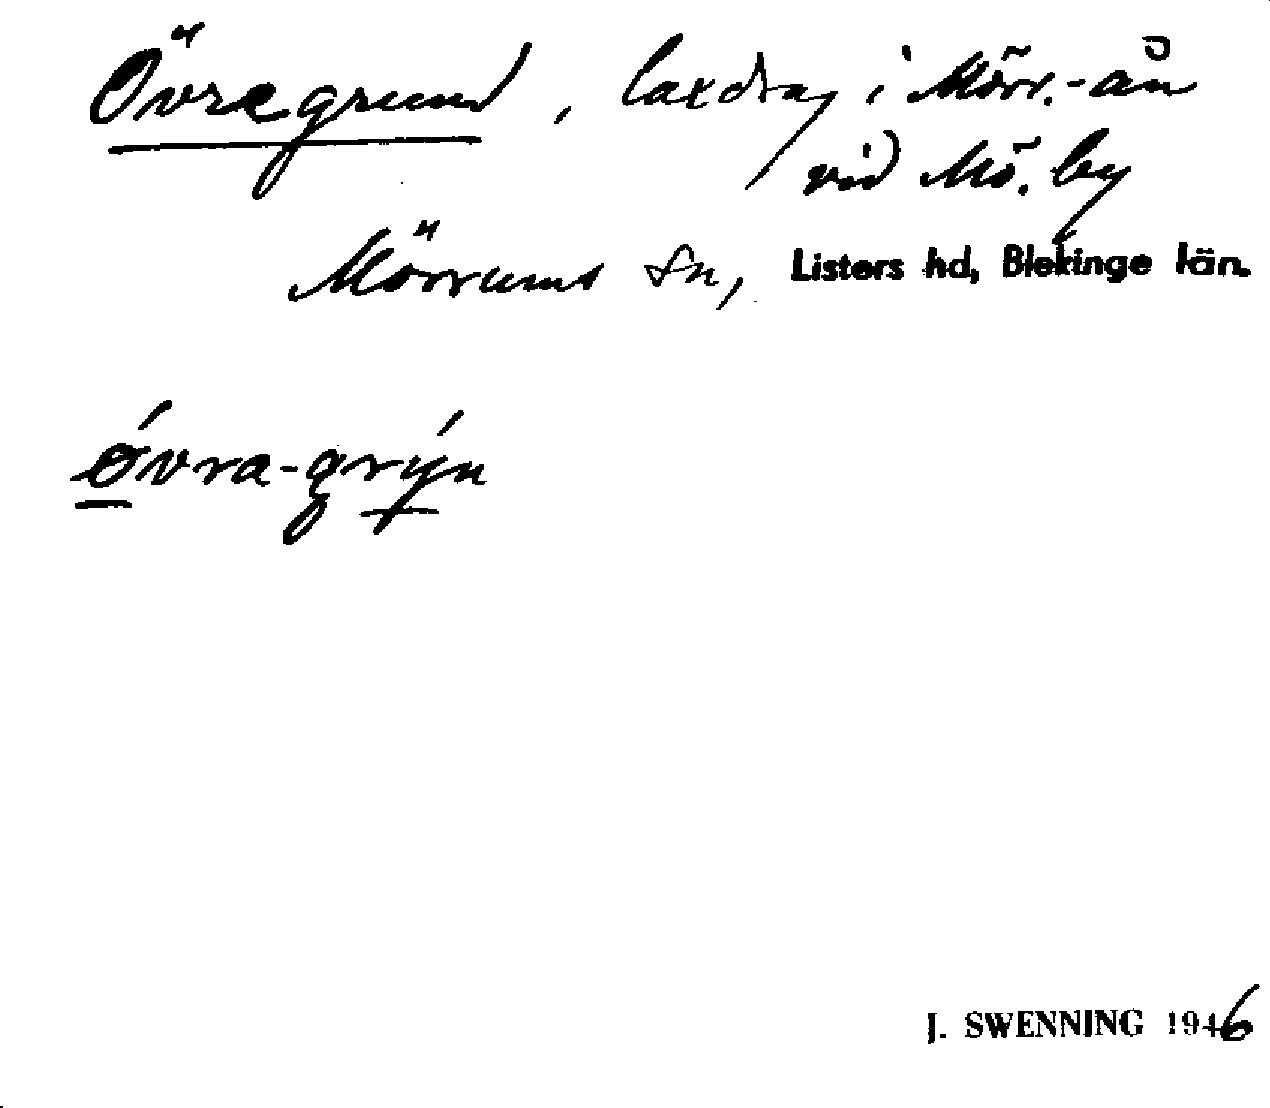 Övragrund, laxdrag i Mörr.-ån
vid Mö. by
Mörrums sn, Listers hd, Blekinge län.
óvra-grýn
J. SWENNING 1946